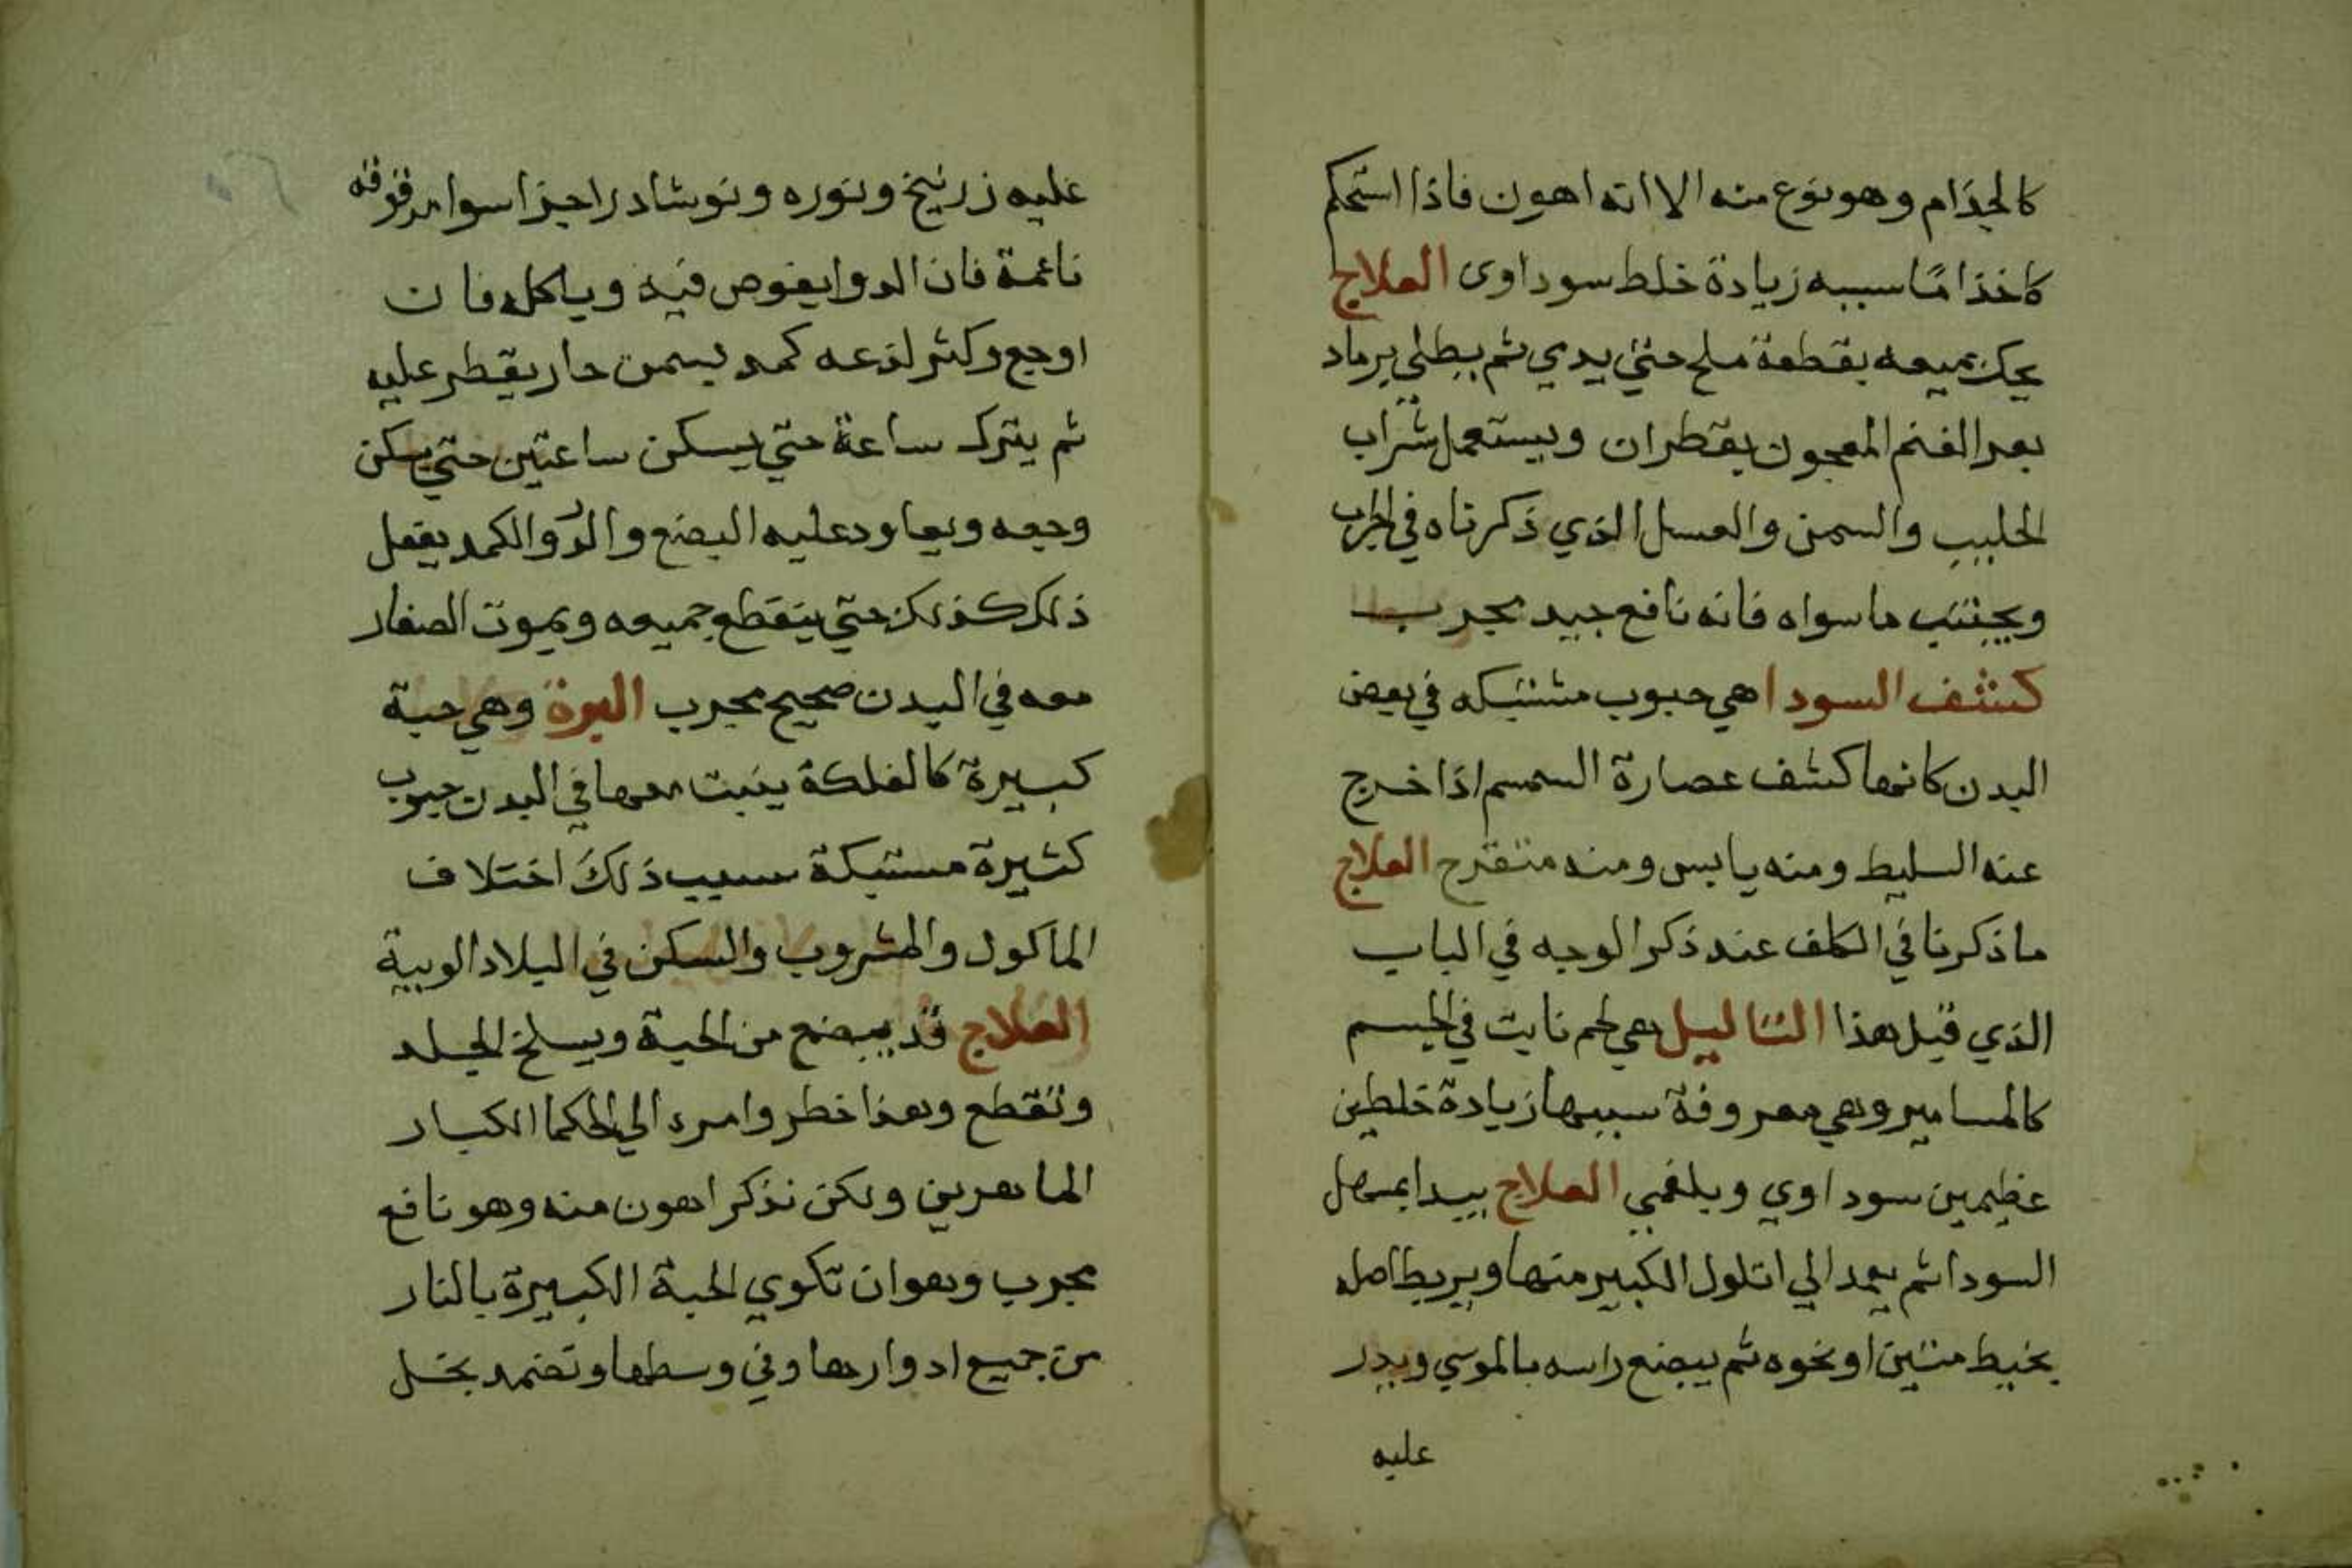 كالجذام وهو نوع منه الا انه اهون فاذا استحكم
كاخذاما سببه زيادة خلط سوداوى العلاج
يحك جميعه بقطعة ملح حتي يدي ثم يطلي برماد
بعر الغنم المعجون بقطران ويستعمل شراب
الحليب والسمن والعسل الذي ذكرناه في الجرب
ويجتنب ما سواه فانه نافع جيد مجرب
كشف السودا هي حبوب مشتبكه في بعض
البدن كانها كشف عصارة السمسم اذا خرج
عنه السليط ومنه يابس ومنه متقرح العلاج
ما ذكرنا في الكلف عند ذكر الوجه في الباب
الذي قبل هذا الثاليل هي لحم نابت في الجسم
كالمسامير وهي معروفة سببها زيادة خلطين
عظيمين سوداوي وبلغمي العلاج يبدا بمسهل
السودا ثم يعمد الي اتلول الكبير منها ويربط اصله
بخيط متين او نحوه ثم يبضع راسه بالموسي ويدر
عليه
عليه زرنيخ ونوره ونوشادر اجزا سوا مدقوقه
ناعمة فان الدوا يغوص فيه وياكله فان
اوجع وكثر لذعه كمد بسمن حار يقطر عليه
ثم يترك ساعة حتي يسكن ساعتين حتي يسكن
وجعه ويعاود عليه البضع والدوا والكمد يفعل
ذلك كذلك حتي ينقطع جميعه ويموت الصغار
معه في البدن صحيح مجرب البرة وهي حبة
كبيرة كالفلكة ينبت معها في البدن حبوب
كثيرة مستبكة سبب ذلك اختلاف
الماكول والمشروب والسكن في البلاد الوبية
العلاج قد يبضع من الحبة ويسلخ الجلد
وتقطع وهذا خطر وامره الي الحكما الكبار
الماهرين ولكن نذكر اهون منه وهو نافع
مجرب وهو ان تكوي الحبة الكبيرة بالنار
من جميع ادوارها وفي وسطها وتضمد بخل